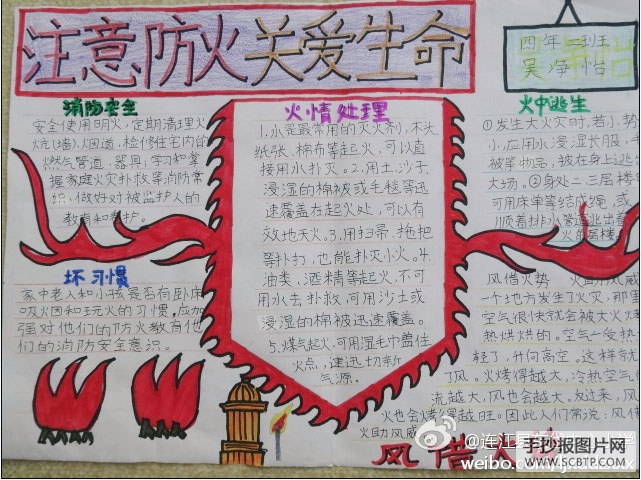 注意防火关爱生命
四年二班
吴净怡
消防安全
安全使用明火，定期清理火
炕(墙)、烟道，检修住宅内的
燃气管道、器具，学习和掌
握家庭火灾扑救等消防常
识，做好对被监护人的
教育和看护。
坏习惯
家中老人和小孩是否有卧床
吸烟和玩火的习惯，应加
强对他们的防火教育他
们的消防安全意识。
火情处理
1.水是最常用的灭火剂，木头
纸张，棉布等起火，可以直
接用水扑灭。2.用土，沙子，
浸湿的棉被或毛毯等迅
速覆盖在起火处，可以有
效地灭火。3.用扫帚，拖把
等扑打，也能扑灭小火。4.
油类，酒精等起火，不可
用水去扑救，可用沙土或
浸湿的棉被迅速覆盖。
5.煤气起火，可用湿毛巾盖住
火点，速迅切断
气源。
火中逃生
①发生大火灾时，若小
小，应用水浸湿长服、
被等物品，披在身上逃
大场。②身处二、三层楼
可用床单等结成绳，或
顺着排水管逃出着
火的层楼
风借火势 火助风威
一个地方发生了火灾，那里
空气很快就会被大火烤
热烘烘的。空气一受热
轻了，并向高空。这样就
了风。火烤得越大，冷热空气的
流越大，风也会越大，反过来，风
火也会烤得越旺。因此人们常说：风借
火助风威
风借
@连江
weibo.com/
手抄报图片网
WWW.SCBTP.COM